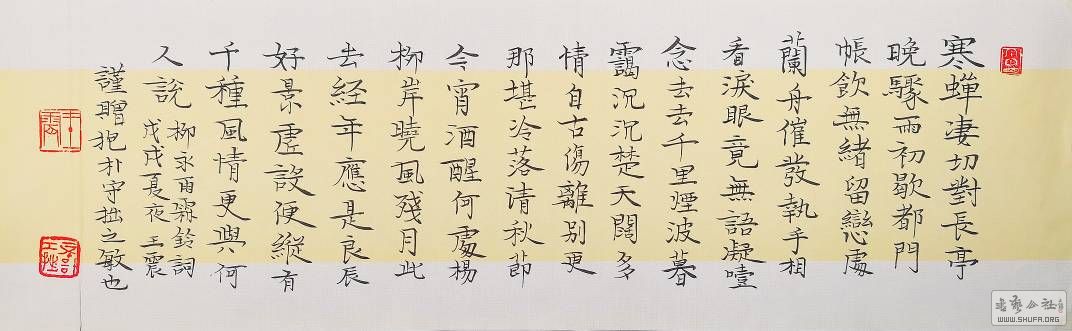 寒蟬凄切對長亭
晚驟雨初歇都門
帳飲無緒留戀處
蘭舟催發執手相
看淚眼竟無語凝噎
念去去千里煙波暮
靄沉沉楚天闊多
情自古傷離別更
那堪冷落清秋節
今宵酒醒何處楊
柳岸曉風殘月此
去經年應是良辰
好景虛設便縱有
千種風情更與何
人說
柳永雨霖鈴詞
戊戌夏夜王震
謹贈抱朴守拙之敏也
書藝公社
WWW.SHUFA.ORG